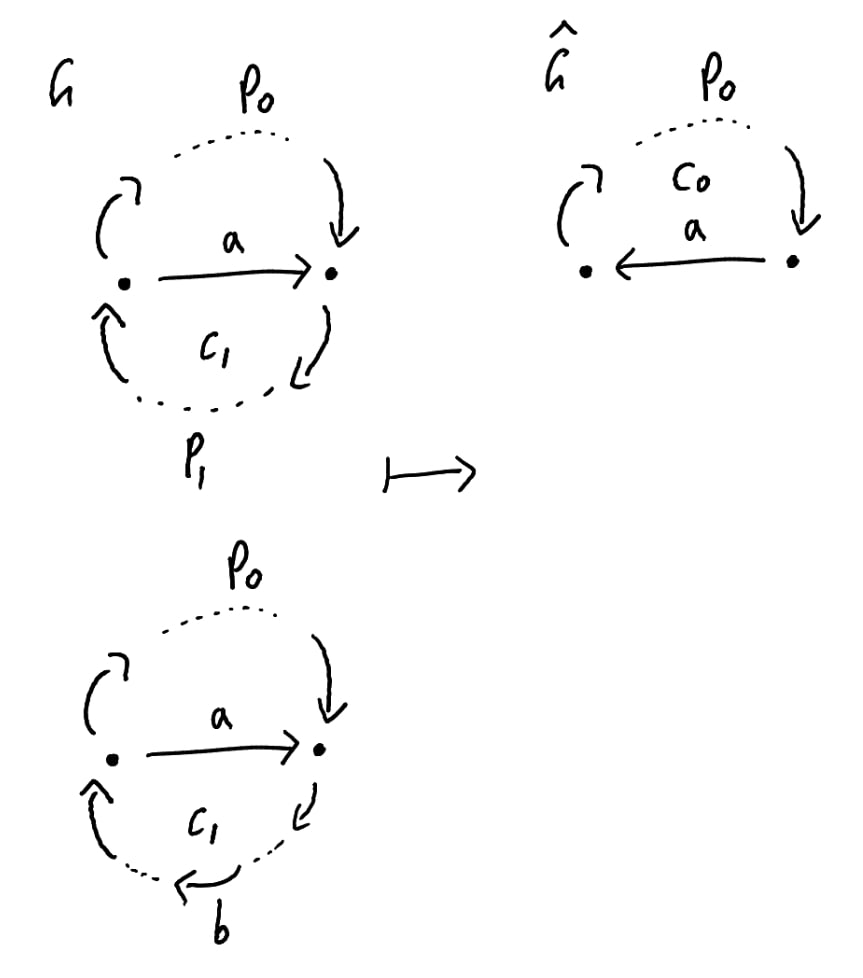 G
P₀
a
C₁
P₁
Ĝ
P₀
C₀
a
P₀
a
C₁
b